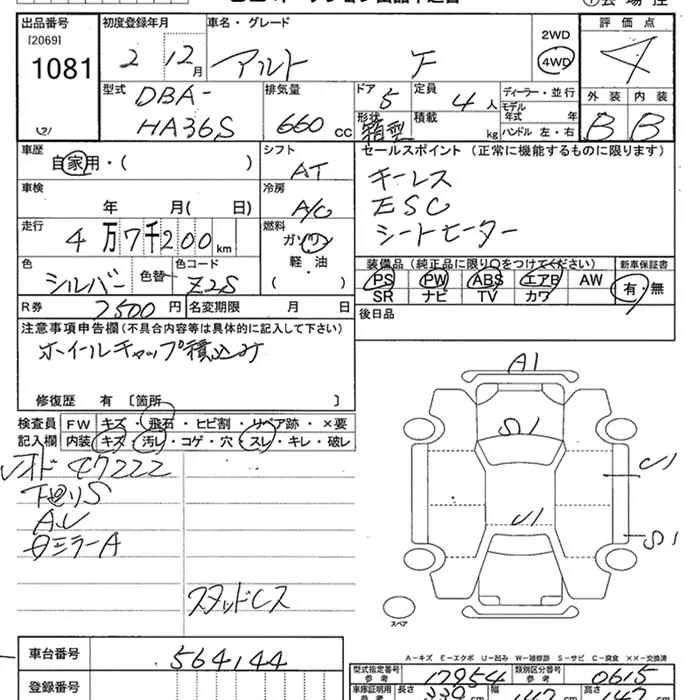 出品番号
[2069]
1081
初度登録年月
2 12月
車名・グレード
アルト F
2WD
4WD
評価点
4
型式
DBA-
HA36S
排気量
660 cc
ドア
5
形状
箱型
定員
4 人
積載
kg
ディーラー・並行
モデル
年式 年
ハンドル 左・右
外装 内装
B B
車歴
自家用・( )
シフト
AT
セールスポイント (正常に機能するものに限ります)
キーレス
ESC
シートヒーター
車検
年 月( 日)
冷房
A/C
走行
4万7千200km
燃料
ガソリン
軽・油
( ・ )
色
シルバー
色替
色コード
Z2S
装備品(純正品に限り○をつけてください)
PS PW ABS エアB AW
SR ナビ TV カワ
新車保証書
有・無
R券
7500円
名変期限 月 日
後日品
注意事項申告欄(不具合内容等は具体的に記入して下さい)
ホイールキャップ積込み
修復歴 有 〔箇所 〕
検査員
記入欄
FW キズ・飛石・ヒビ割・リペア跡・×要
内装 キズ・汚レ・コゲ・穴・スレ・キレ・破レ
A.U
スタッドレス
A1
S1
U1
U1
S1
スペア
A-キズ E-エクボ U-凹み W-補修跡 S-サビ C-腐食 ××-交換済
車台番号
564144
登録番号
型式指定番号
参考
17954
類別区分番号
参考
0615
車庫証明用
参考
長さ
幅
高さ